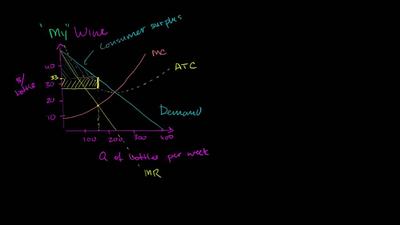 "My" Wine
Consumer surplus
MC
ATC
$/
bottle
40
33
30
20
10
Demand
100 200 300 400
Q of bottles per week
MR